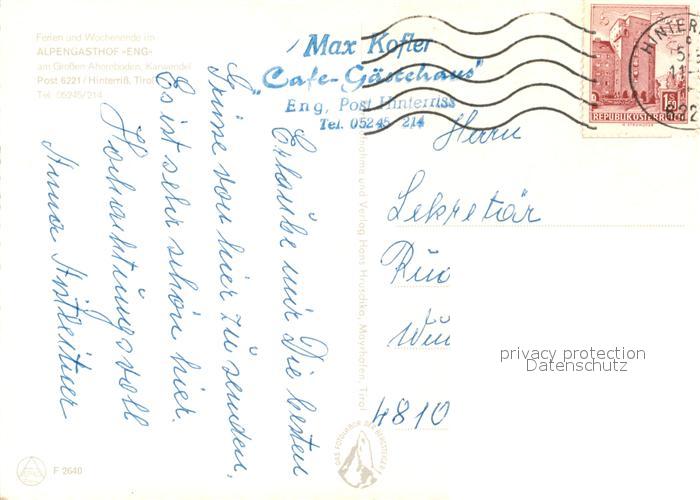 Ferien und Wochenende im
ALPENGASTHOF »ENG«
am Großen Ahornboden, Karwendel
Post 6221 / Hinterriß, Tirol
Tel. 05245/214
Max Kofler
"Cafe-Gästehaus"
Eng, Post Hinterriss
Tel. 05245 214
HINTER
REPUBLIK ÖSTERREICH
Erlaube mir Die besten
Grüsse von hier zu senden,
Es ist sehr schön hier.
Hochachtungsvoll
Anna
Herrn
Sekretär
4810
privacy protection
Datenschutz
und Verlag Hans Hruschka, Mayrhofen, Tirol
DAS FOTOHAUS DER BERGSTEIGER
F 2640